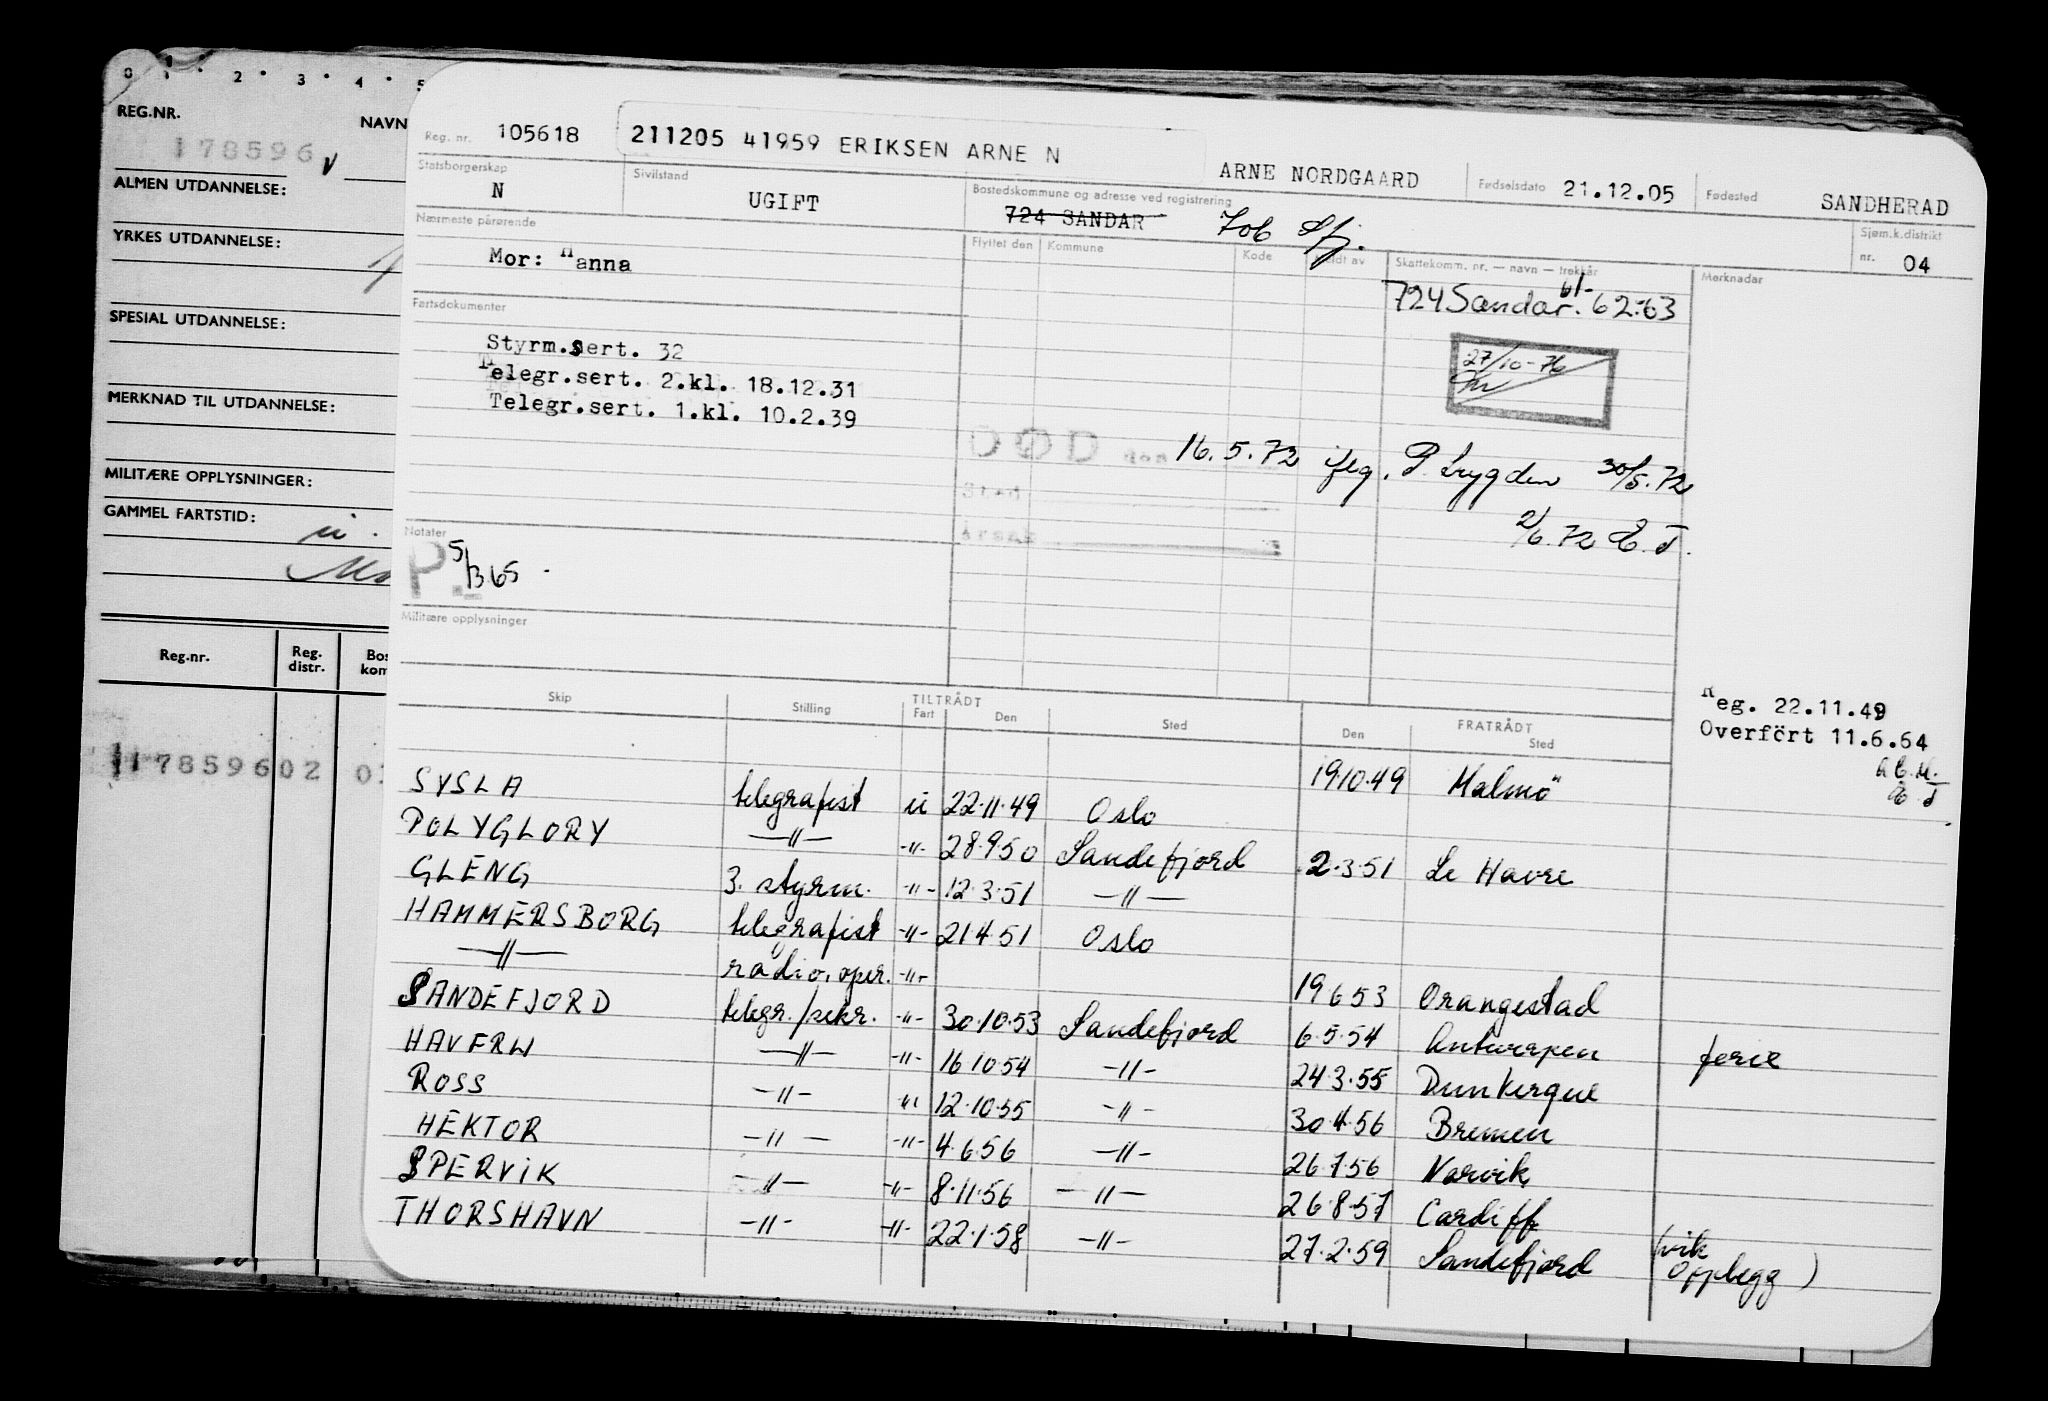 0 1 2 3 4 5
REG.NR.
NAVN
178596
ALMEN UTDANNELSE:
YRKES UTDANNELSE:
SPESIAL UTDANNELSE:
MERKNAD TIL UTDANNELSE:
MILITÆRE OPPLYSNINGER:
GAMMEL FARTSTID:
Reg.nr.
Reg. distr.
17859602
Reg. nr. 105618
211205 41959 ERIKSEN ARNE N
ARNE NORDGAARD
Fødselsdato 21.12.05
Fødested SANDHERAD
Statsborgerskap N
Sivilstand UGIFT
Bostedskommune og adresse ved registrering
724 SANDAR 706 Sfj.
Sjøm.k.distrikt nr. 04
Nærmeste pårørende
Mor: Hanna
Flyttet den Kommune Kode Meldt av Skattekomm. nr. — navn — trekkår Merknader
724 Sandar. 61-62-63
Fartsdokumenter
Styrm.sert. 32
Telegr.sert. 2.kl. 18.12.31
Telegr.sert. 1.kl. 10.2.39
27/10-76
DØD den 16.5.72 ifлg. P. trygden 30/5.72
Sted
Årsak
2/6.72 E.T.
Notater
P. 5/3 65
Militære opplysninger
Reg. 22.11.49
Overført 11.6.64
Skip Stilling TILTRÅDT Fart Den Sted FRATRÅDT Den Sted
19.10.49 Malmö
SYSLA telegrafist u 22.11.49 Oslo
POLYGLORY —"— -"- 28.9.50 Sandefjord 2.3.51 Le Havre
GLENG 3. styrm. -"- 12.3.51 —"—
HAMMERSBORG telegrafist -"- 21.4.51 Oslo
—"— radio.oper. -"- 19.6.53 Orangestad
SANDEFJORD telegr./sekr. -"- 30.10.53 Sandefjord 6.5.54 Antwerpen ferie
HAVERN —"— -"- 16.10.54 -"- 24.3.55 Dunkerque
ROSS -"- -"- 12.10.55 -"- 30.4.56 Bremen
HEKTOR -"- -"- 4.6.56 -"- 26.7.56 Narvik
SPERVIK -"- -"- 8.11.56 -"- 26.8.57 Cardiff
THORSHAVN -"- -"- 22.1.58 -"- 27.2.59 Sandefjord (vik opplegg)